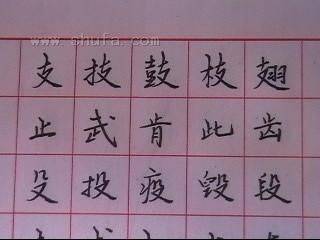 www.shufa.com
支技鼓枝翅
止武肯此齿
殳投疫毁段